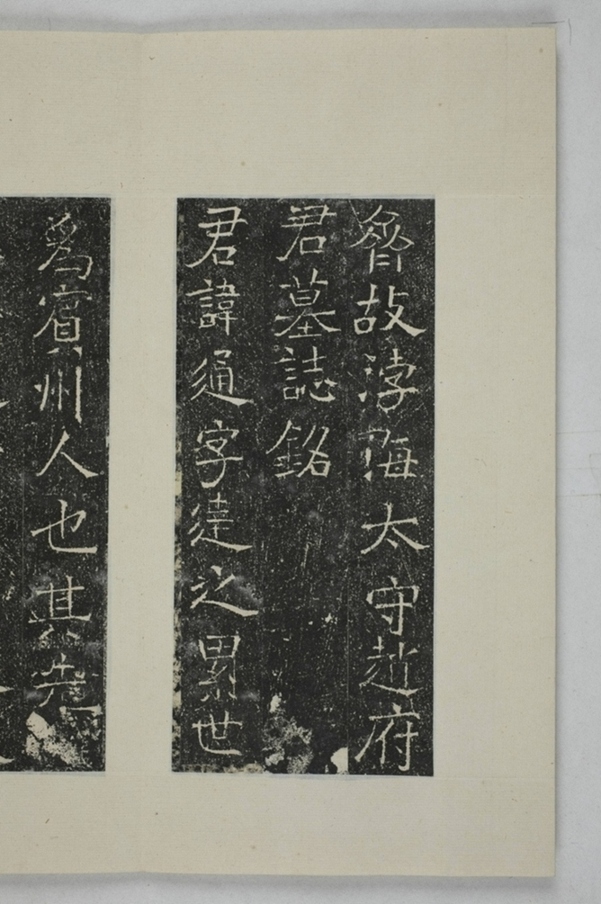 齊故浡海太守趙府
君墓誌銘
君諱通字達之累世
爲賓州人也其先